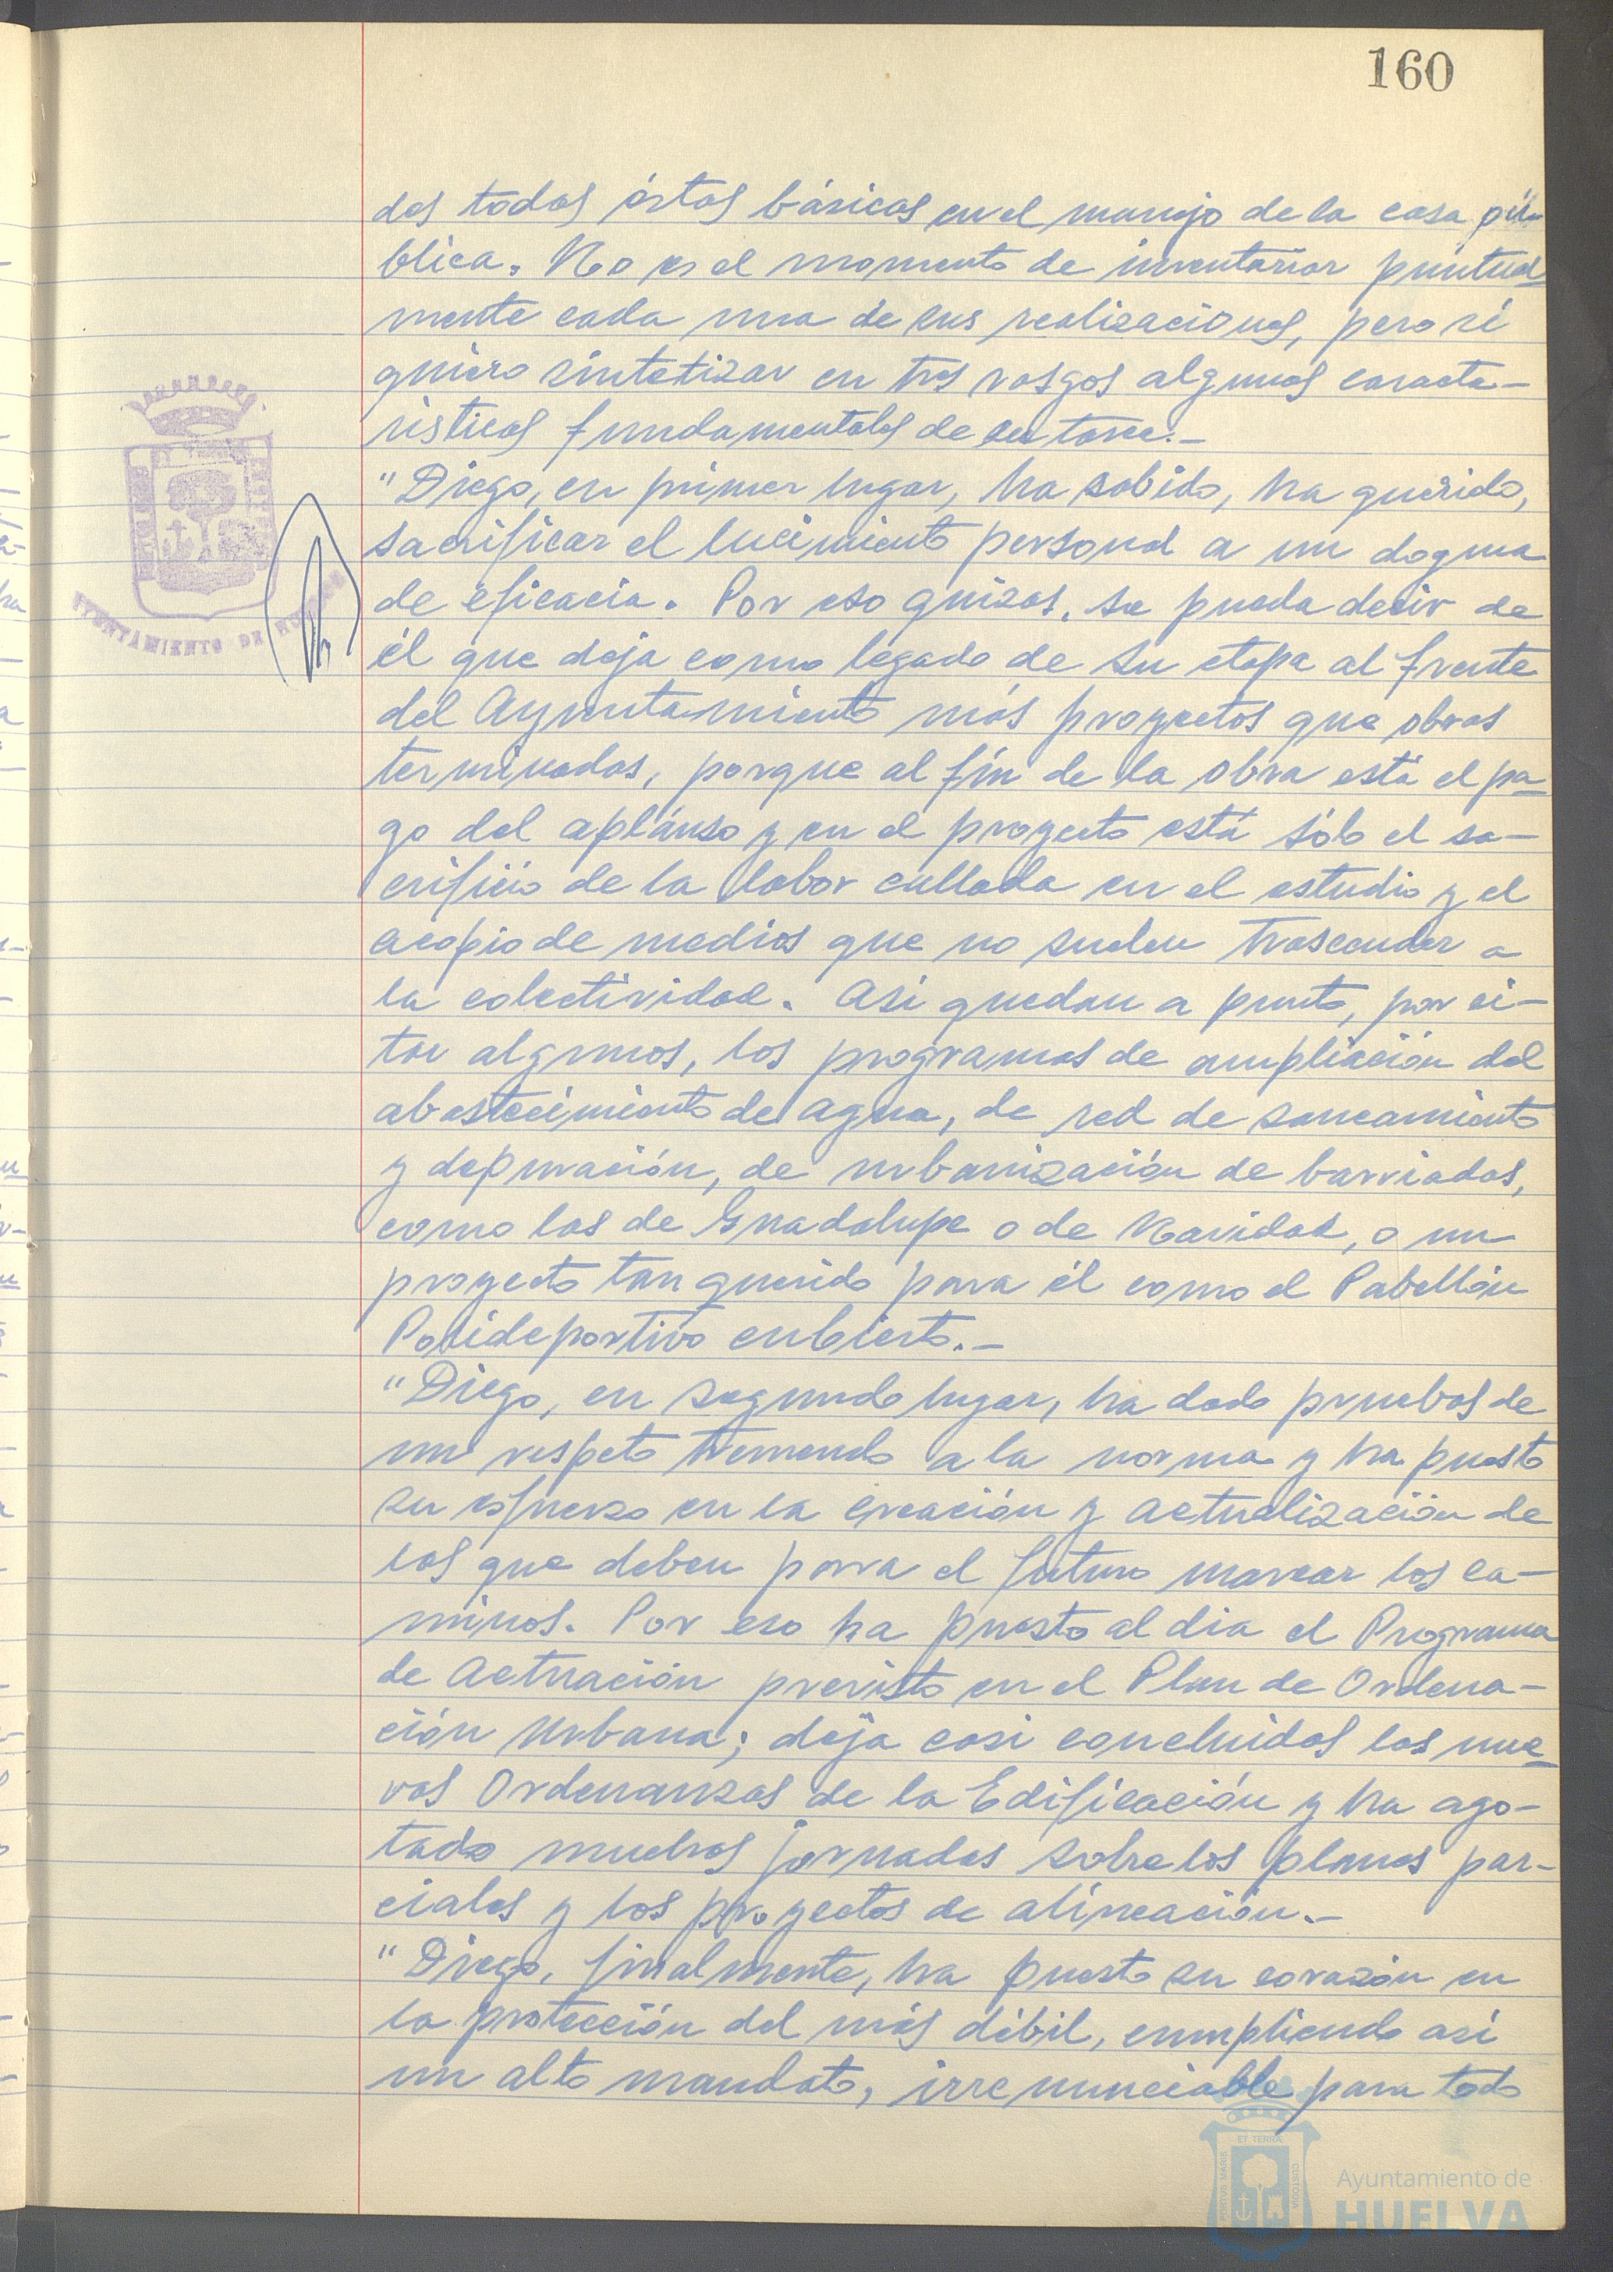 160
des todas éstas básicas en el manejo de la cosa pú-
blica. No es el momento de inventariar puntual
mente cada una de sus realizaciones, pero sí
quiero sintetizar en tres rasgos algunas caracte-
rísticas fundamentales de su tarea.-
"Diego, en primer lugar, ha sabido, ha querido,
sacrificar el lucimiento personal a un dogma
de eficacia. Por eso quizás, se pueda decir de
él que deja como legado de su etapa al frente
del Ayuntamiento más proyectos que obras
terminadas, porque al fín de la obra está el pa-
go del apláuso y en el proyecto está sólo el sa-
crificio de la labor callada en el estudio y el
acopio de medios que no suelen trascender a
la colectividad. Así quedan a punto, por ci-
tar algunos, los programas de ampliación del
abastecimiento de agua, de red de saneamiento
y depuración, de urbanización de barriadas,
como las de Guadalupe o de Navidad, o un
proyecto tan querido para él como el Pabellón
Polideportivo cubierto.-
"Diego, en segundo lugar, ha dado pruebas de
un respeto tremendo a la norma y ha puesto
su esfuerzo en la creación y actualización de
las que deben para el futuro marcar los ca-
minos. Por eso ha puesto al dia el Programa
de Actuación previsto en el Plan de Ordena-
ción Urbana; deja casi concluidas las nue-
vas Ordenanzas de la Edificación y ha ago-
tado muchas jornadas sobre los planes par-
ciales y los proyectos de alineación.-
"Diego, finalmente, ha puesto su corazón en
la protección del más débil, cumpliendo así
un alto mandato, irrenunciable para todo
AYUNTAMIENTO DE HUELVA
PORTUS MARIS
ET TERRA
CUSTODIA
Ayuntamiento de
HUELVA